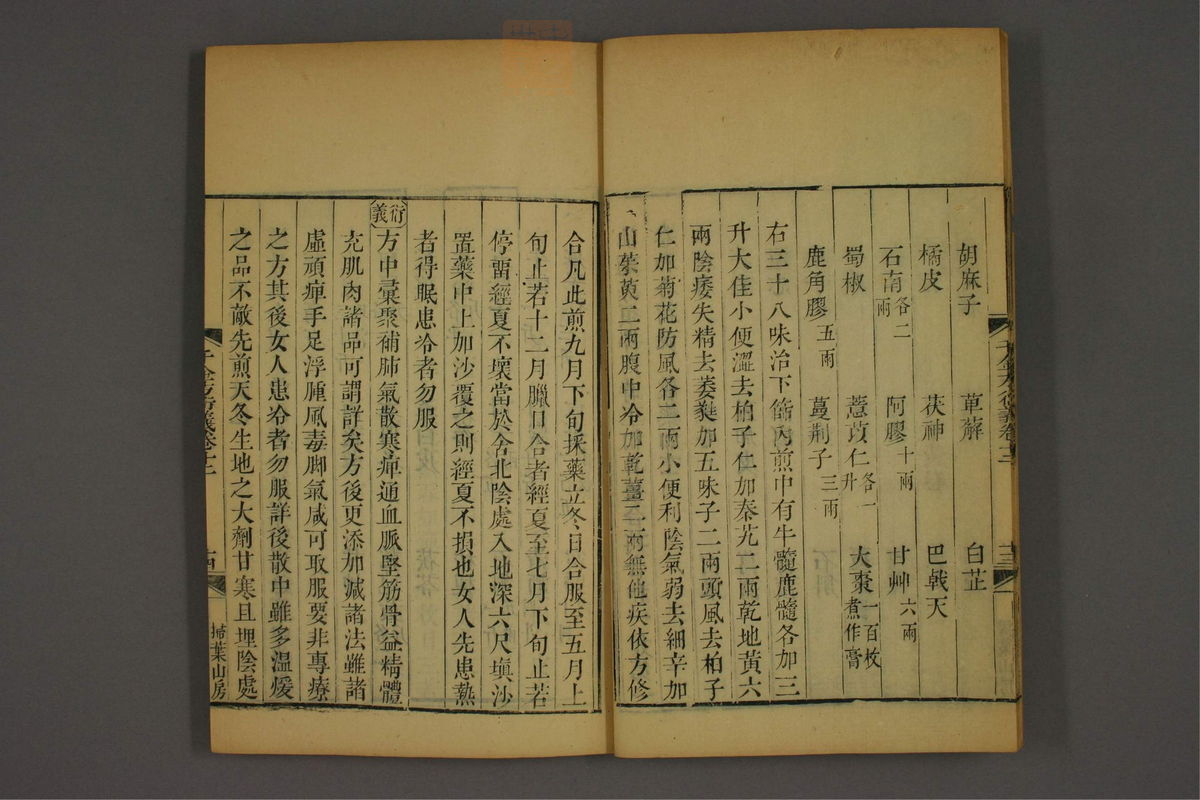 胡麻子 萆薢 白芷
橘皮 茯神 巴戟天
石南各二兩 阿膠十兩 甘艸六兩
蜀椒 薏苡仁各一升 大棗一百枚煮作膏
鹿角膠五兩 蔓荆子三兩
右三十八味治下篩內煎中有牛髓鹿髓各加三
升大佳小便澀去柏子仁加秦艽二兩乾地黃六
兩陰痿失精去萎蕤加五味子二兩頭風去柏子
仁加菊花防風各二兩小便利陰氣弱去細辛加
山茱萸二兩腹中冷加乾薑二兩無他疾依方修
合凡此煎九月下旬採藥立冬日合服至五月上
旬止若十二月臘日合者經夏至七月下旬止若
停畱經夏不壞當於舍北陰處入地深六尺塡沙
置藥中上加沙覆之則經夏不損也女人先患熱
者得眠患冷者勿服
衍義 方中彙聚補肺氣散寒痺通血脈堅筋骨益精體
充肌肉諸品可謂詳矣方後更添加減諸法雖諸
虛頑痺手足浮腫風毒脚氣咸可取服要非專療
之方其後女人患冷者勿服詳後散中雖多溫煖
之品不敵先煎天冬生地之大劑甘寒且埋陰處
千金方衍義卷十二 十四
掃葉山房